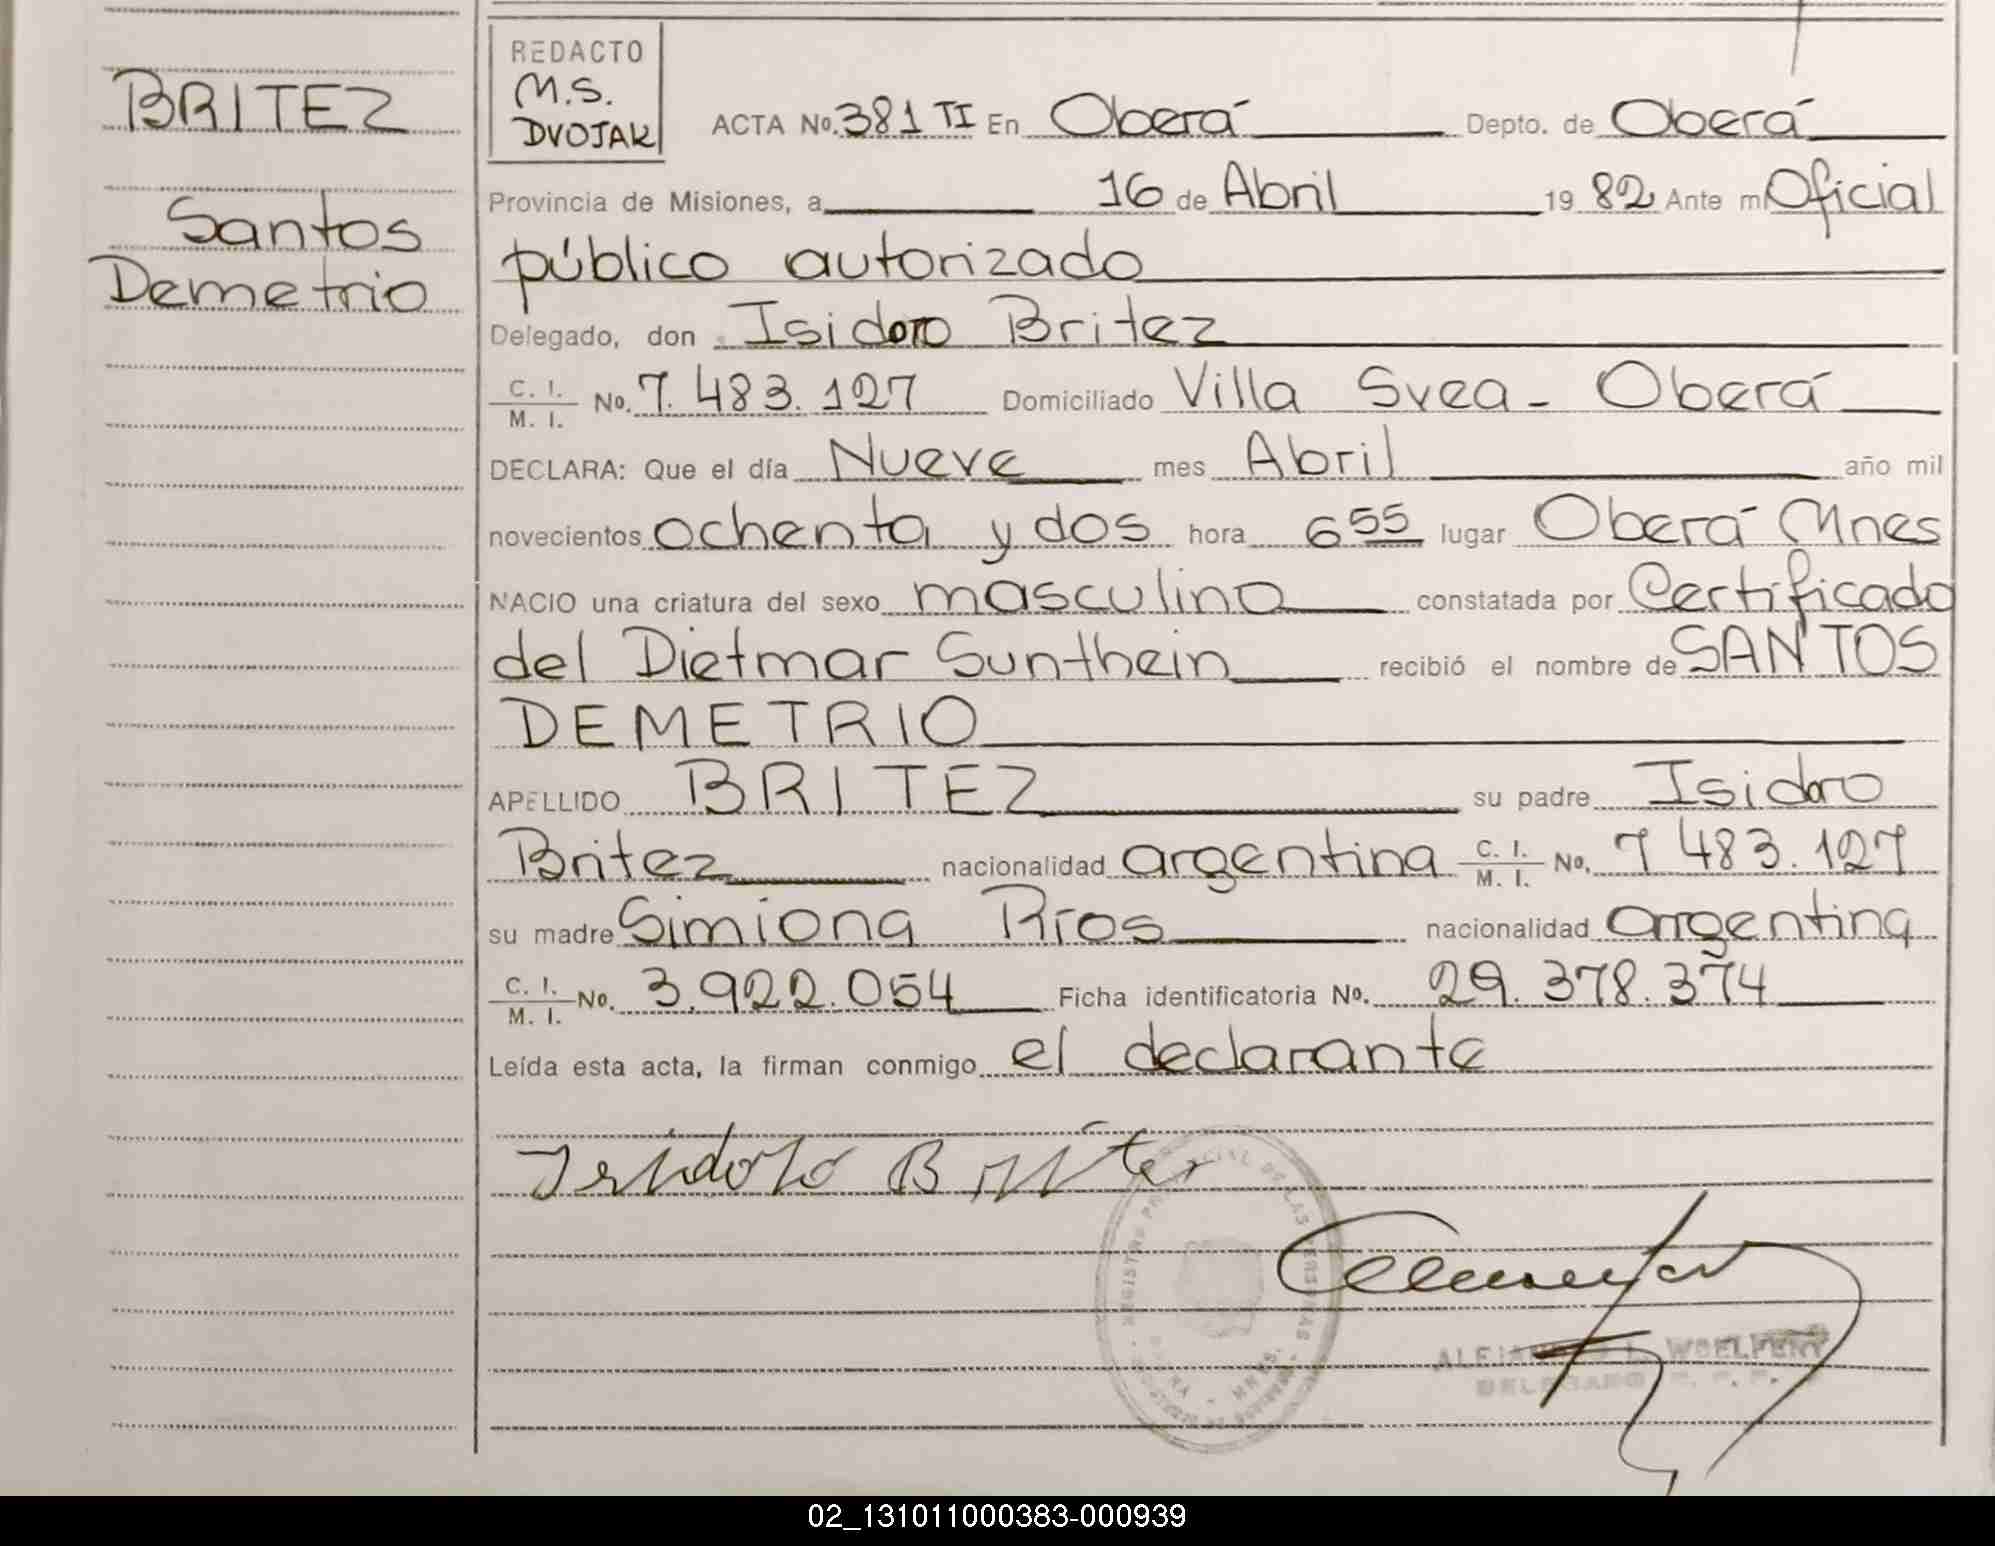 BRITEZ
Santos
Demetrio
REDACTO
M.S.
DVOJAK
ACTA No. 381 TI En Oberá Depto. de Oberá
Provincia de Misiones, a 16 de Abril 1982 Ante mi Oficial
público autorizado
Delegado, don Isidoro Britez
C. I. / M. I. No. 7.483.127 Domiciliado Villa Svea - Oberá
DECLARA: Que el día Nueve mes Abril año mil
novecientos ochenta y dos hora 6 55 lugar Oberá Mnes
NACIO una criatura del sexo masculino constatada por Certificado
del Dietmar Sunthein recibió el nombre de SANTOS
DEMETRIO
APELLIDO BRITEZ su padre Isidoro
Britez nacionalidad argentina C. I. / M. I. No. 7 483.127
su madre Simiona Rios nacionalidad argentina
C. I. / M. I. No. 3.922.054 Ficha identificatoria No. 29.378.374
Leída esta acta, la firman conmigo el declarante
Isidoro Britez
DE LAS PERSONAS
MNES.
02_131011000383-000939